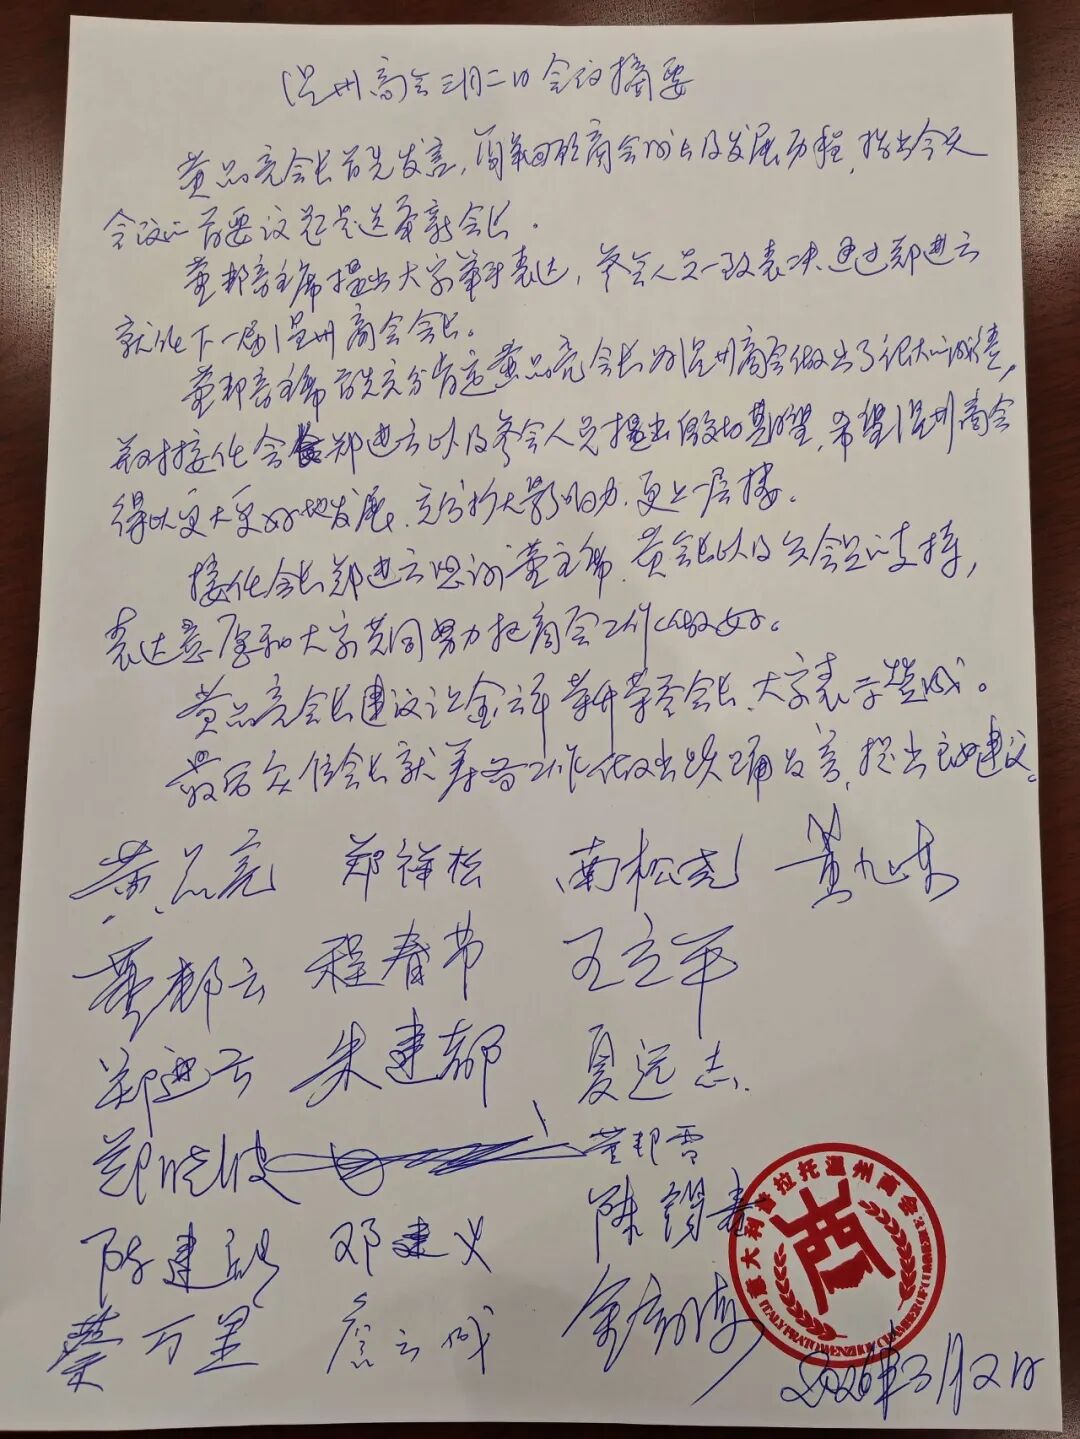 温州商会三月二日会议摘要
黄品亮会长首先发言，简单回顾商会的成长及发展历程，指出今天
会议的首要议题是选举新会长。
董邦音主席提出大家举手表达，参会人员一致表决通过郑进云
就任下一届温州商会会长。
董邦音主席首先充分肯定黄品亮会长为温州商会做出了很大的成绩，
并对接任会长郑进云以及参会人员提出殷切期望，希望温州商会
得以更大更好地发展，充分扩大影响力，更上一层楼。
接任会长郑进云感谢董主席、黄会长以及众会员的支持，
表达意愿和大家共同努力把商会工作做好。
黄品亮会长建议让金云祥荣升荣誉会长，大家表示赞成。
最后众位会长就筹备工作做出踊跃发言，提出建议。
黄品亮 郑祥松 南松尧 董旭东
董邦云 程春节 王立军
郑进云 朱建都 夏远志
郑晓波 董邦雷
陈建 邓建义 陈锡春
蔡万里 詹云成 金
意大利普拉托温州商会
ITALY PRATO WENZHOU CHAMBER OF COMMERCE
2026年3月2日